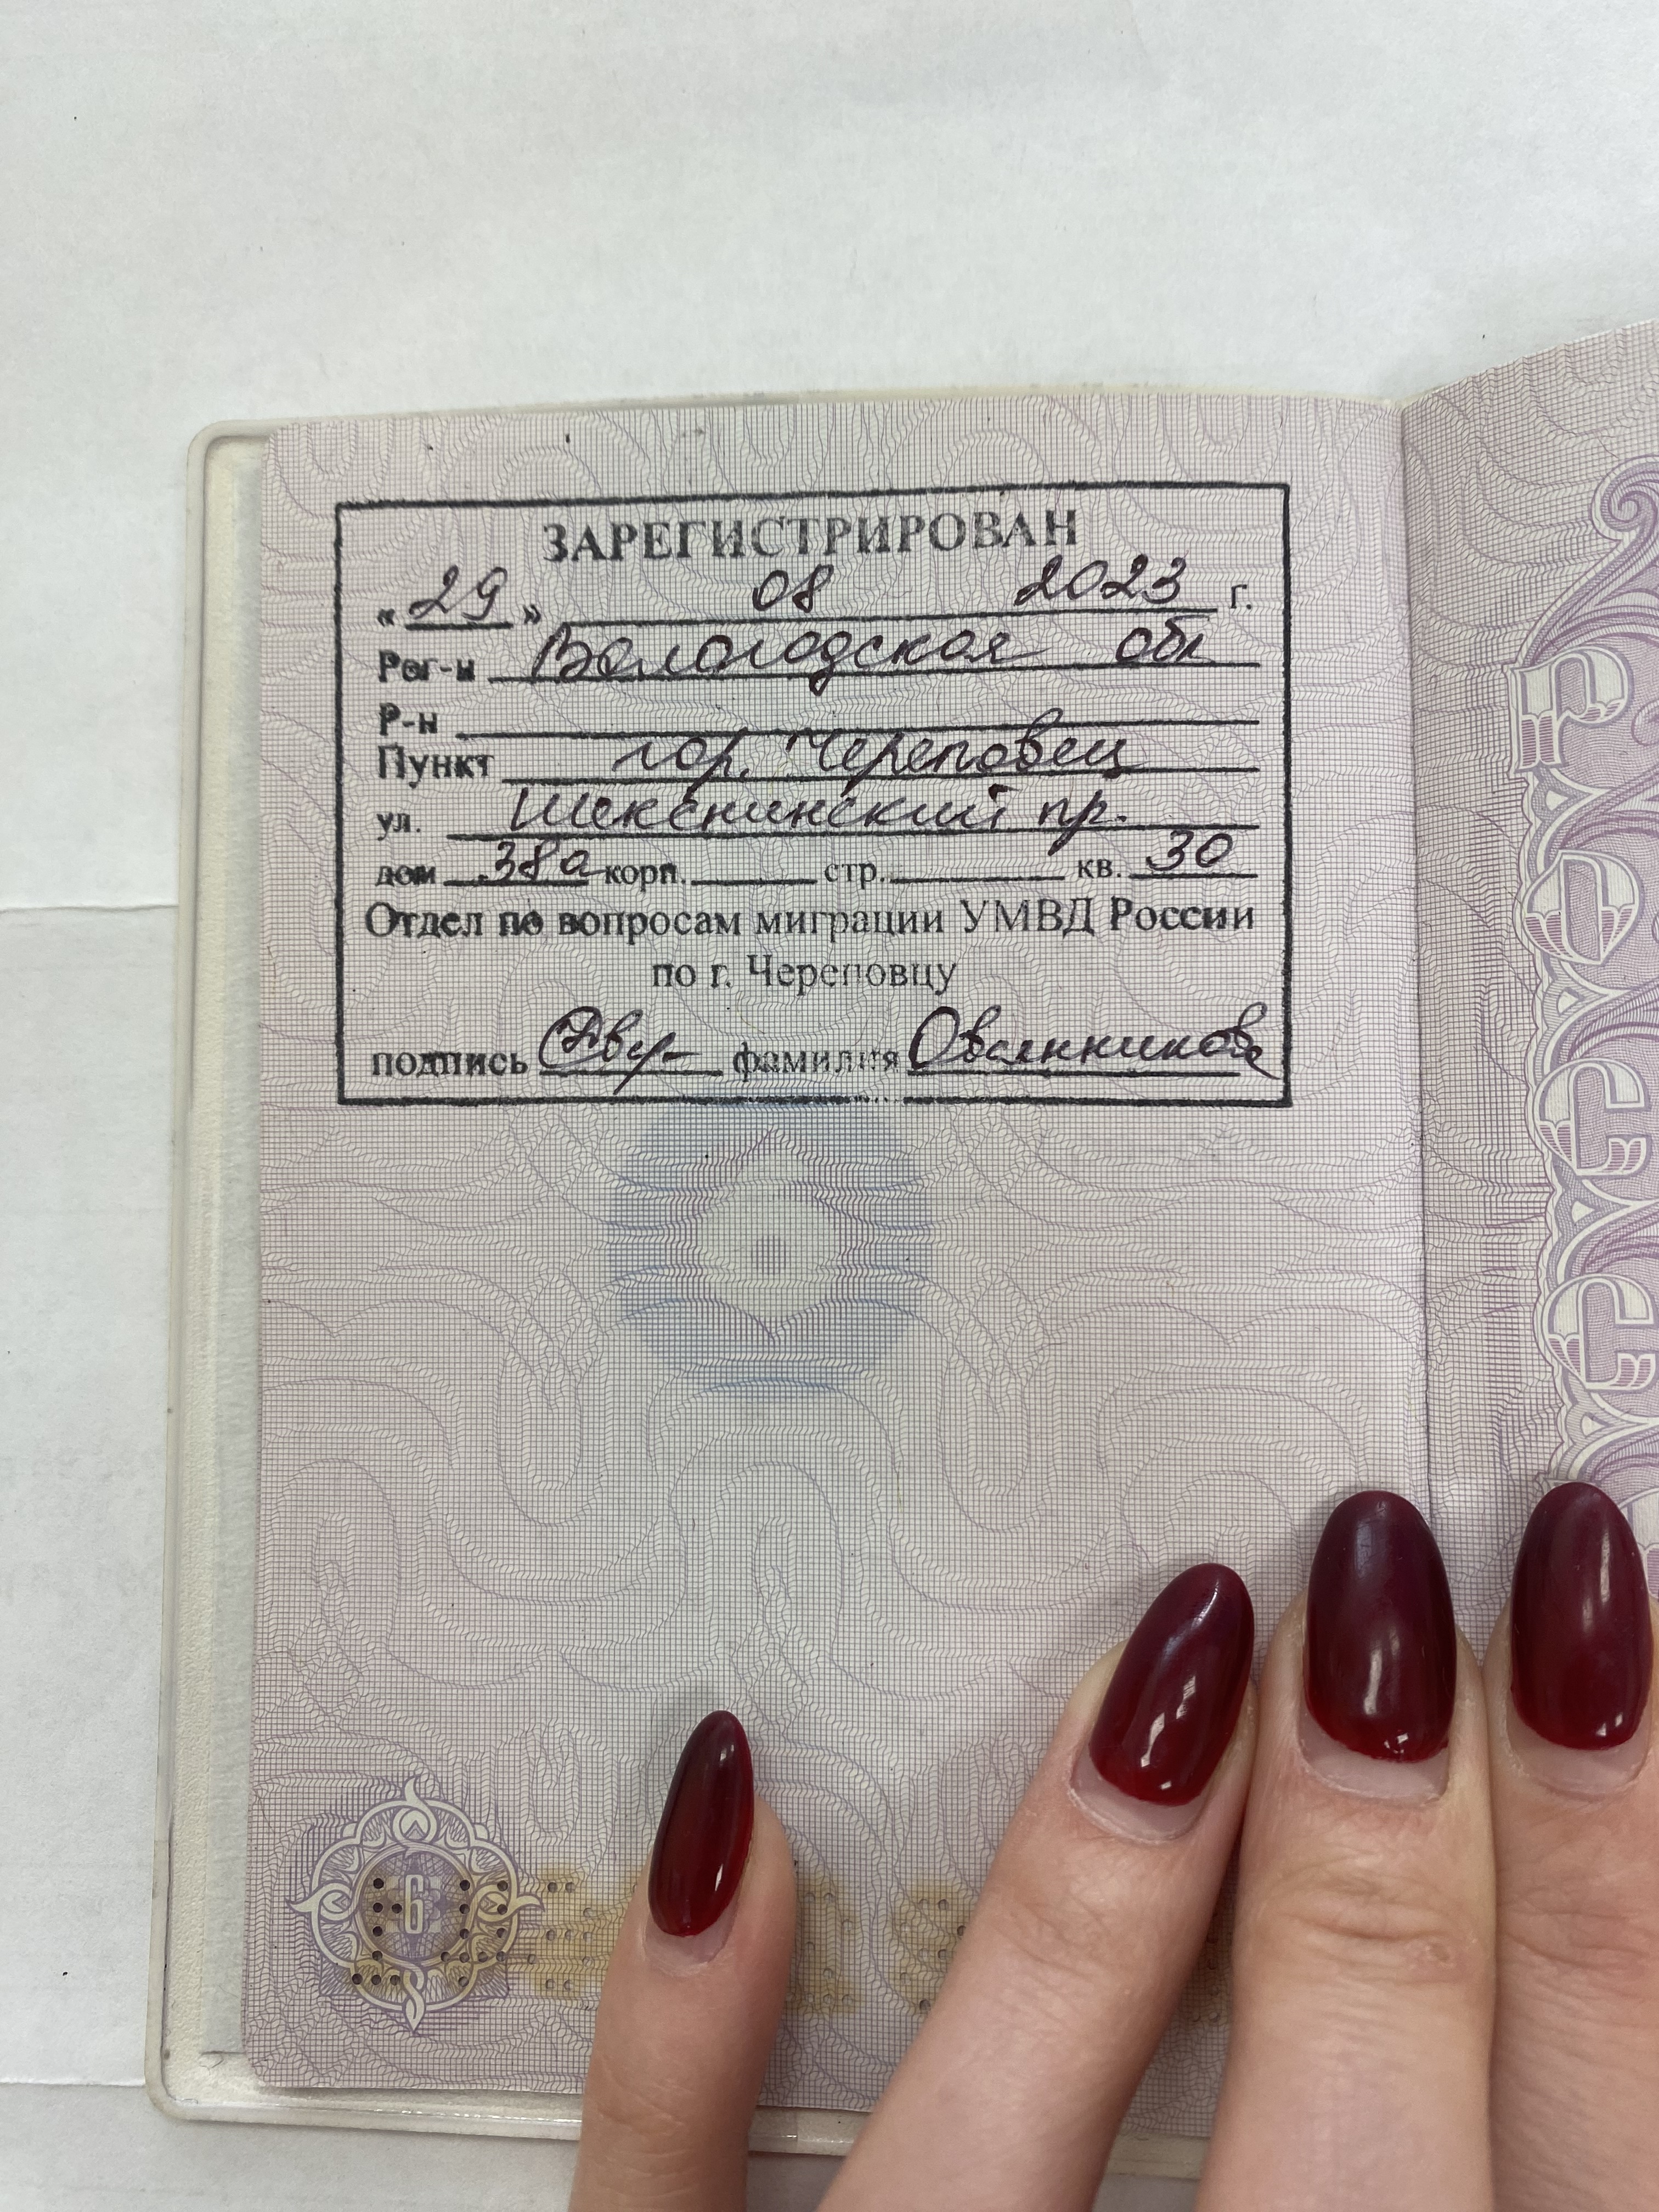 ЗАРЕГИСТРИРОВАН
« 29 » 08 2023 г.
Рег-н Вологодская обл
Р-н
Пункт гор. Череповец
ул. Шекснинский пр.
дом 38а корп. стр. кв. 30
Отдел по вопросам миграции УМВД России
по г. Череповцу
подпись фамилия Овсянникова
6